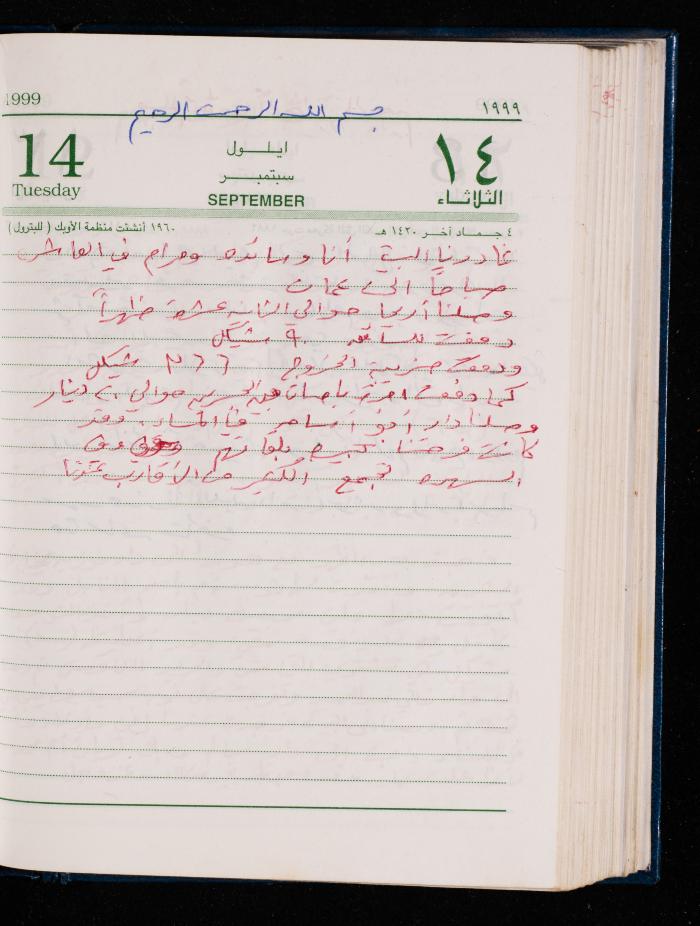 1999
بسم الله الرحمن الرحيم
١٩٩٩
14
Tuesday
ايلــول
سبتمبــر
SEPTEMBER
١٤
الثلاثاء
٤ جمـاد آخـر ١٤٢٠ هـ
١٩٦٠ أنشئت منظمة الأوبك ( للبترول )
غادرنا البيت أنا وسائده ومرام في العاشره
صباحاً الى عمان
وصلنا أريحا حوالي الثانيه عشره ظهراً
دفعت للسائق ٩٠ شيكل
ودفعت ضريبة الخروج ٣٦٦ شيكل
كما دفعت اجرة باصات من الجسرين حوالي ٢٠ دينار
وصلنا دار أبو أسامر في المساء . وقد
كانت فرحتنا كبيره بلقائهم وفي
السهره تجمع الكثير من الأقارب عندنا